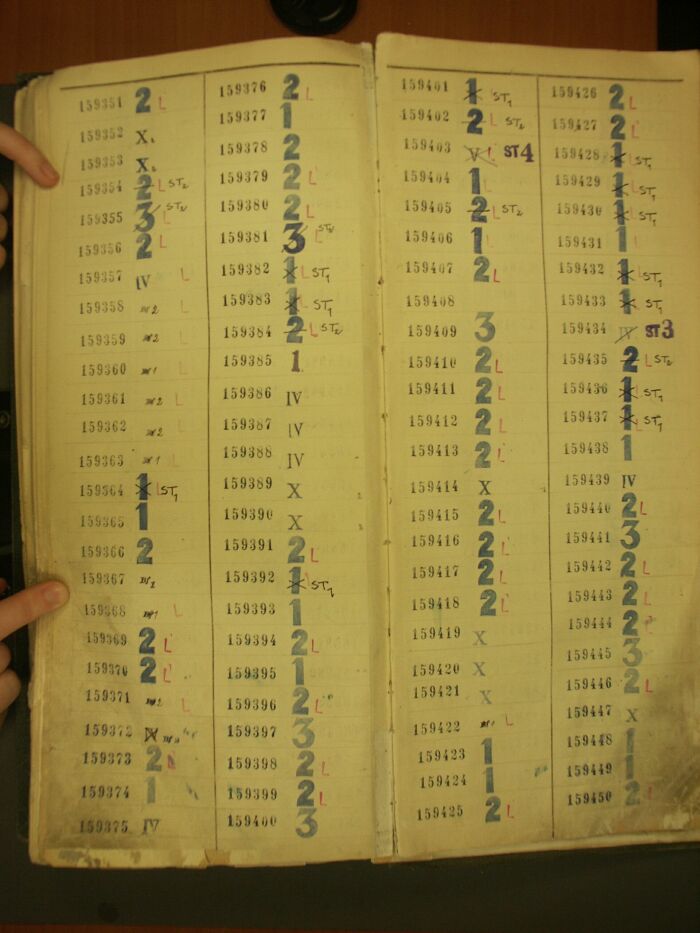 159351 2 L
159352 X
159353 X
159354 2 L ST2
159355 3 L
159356 2 L
159357 IV L
159358 L
159359 L
159360 L
159361 L
159362 L
159363 L
159364 1 L ST1
159365 1
159366 2
159367
159368 L
159369 2 L
159370 2 L
159371 L
159372
159373 2 L
159374 1
159375 IV
159376 2 L
159377 1
159378 2
159379 2 L
159380 2 L
159381 3 L
159382 1 L ST1
159383 1 L ST1
159384 2 L ST2
159385 1
159386 IV
159387 IV
159388 IV
159389 X
159390 X
159391 2 L
159392 1 L ST1
159393 1
159394 2 L
159395 1
159396 2 L
159397 3
159398 2 L
159399 2 L
159400 3
159401 1 L ST1
159402 2 L ST2
159403 V L ST4
159404 1 L
159405 2 L ST2
159406 1 L
159407 2 L
159408
159409 3
159410 2 L
159411 2 L
159412 2 L
159413 2 L
159414 X
159415 2 L
159416 2 L
159417 2 L
159418 2 L
159419 X
159420 X
159421 X
159422 L
159423 1
159424 1
159425 2 L
159426 2 L
159427 2 L
159428 1 L ST1
159429 1 L ST1
159430 1 L ST1
159431 1 L
159432 1 L ST1
159433 1 L ST1
159434 IV ST3
159435 2 L ST2
159436 1 L ST1
159437 1 L ST1
159438 1
159439 IV
159440 2 L
159441 3
159442 2 L
159443 2 L
159444 2
159445 3
159446 2 L
159447 X
159448 1
159449 1
159450 2 L